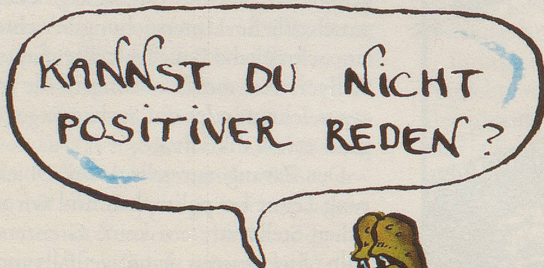 KANNST DU NiCHT
POSiTiVER REDEN?